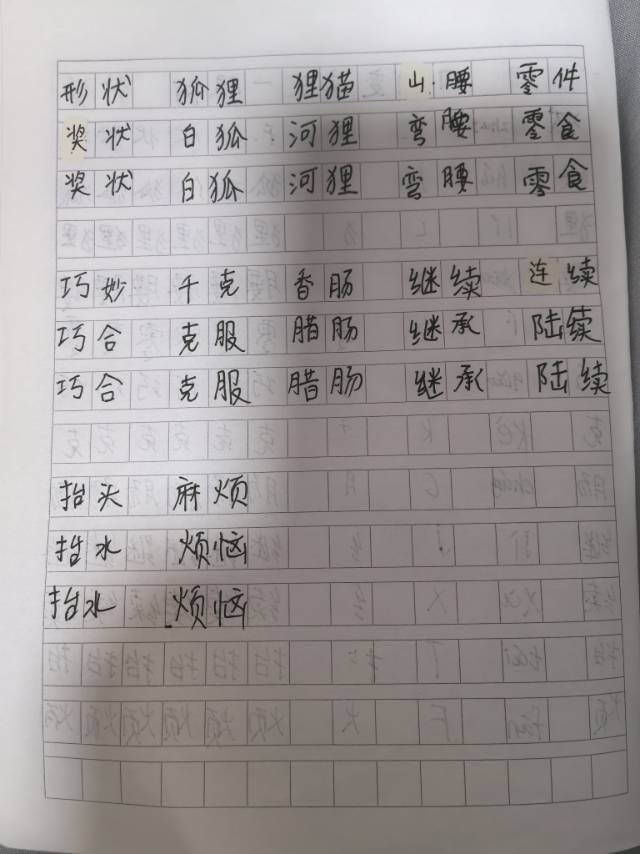 形状 狐狸 狸猫 山腰 零件
奖状 白狐 河狸 弯腰 零食
奖状 白狐 河狸 弯腰 零食
巧妙 千克 香肠 继续 连续
巧合 克服 腊肠 继承 陆续
巧合 克服 腊肠 继承 陆续
抬头 麻烦
抬水 烦恼
抬水 烦恼